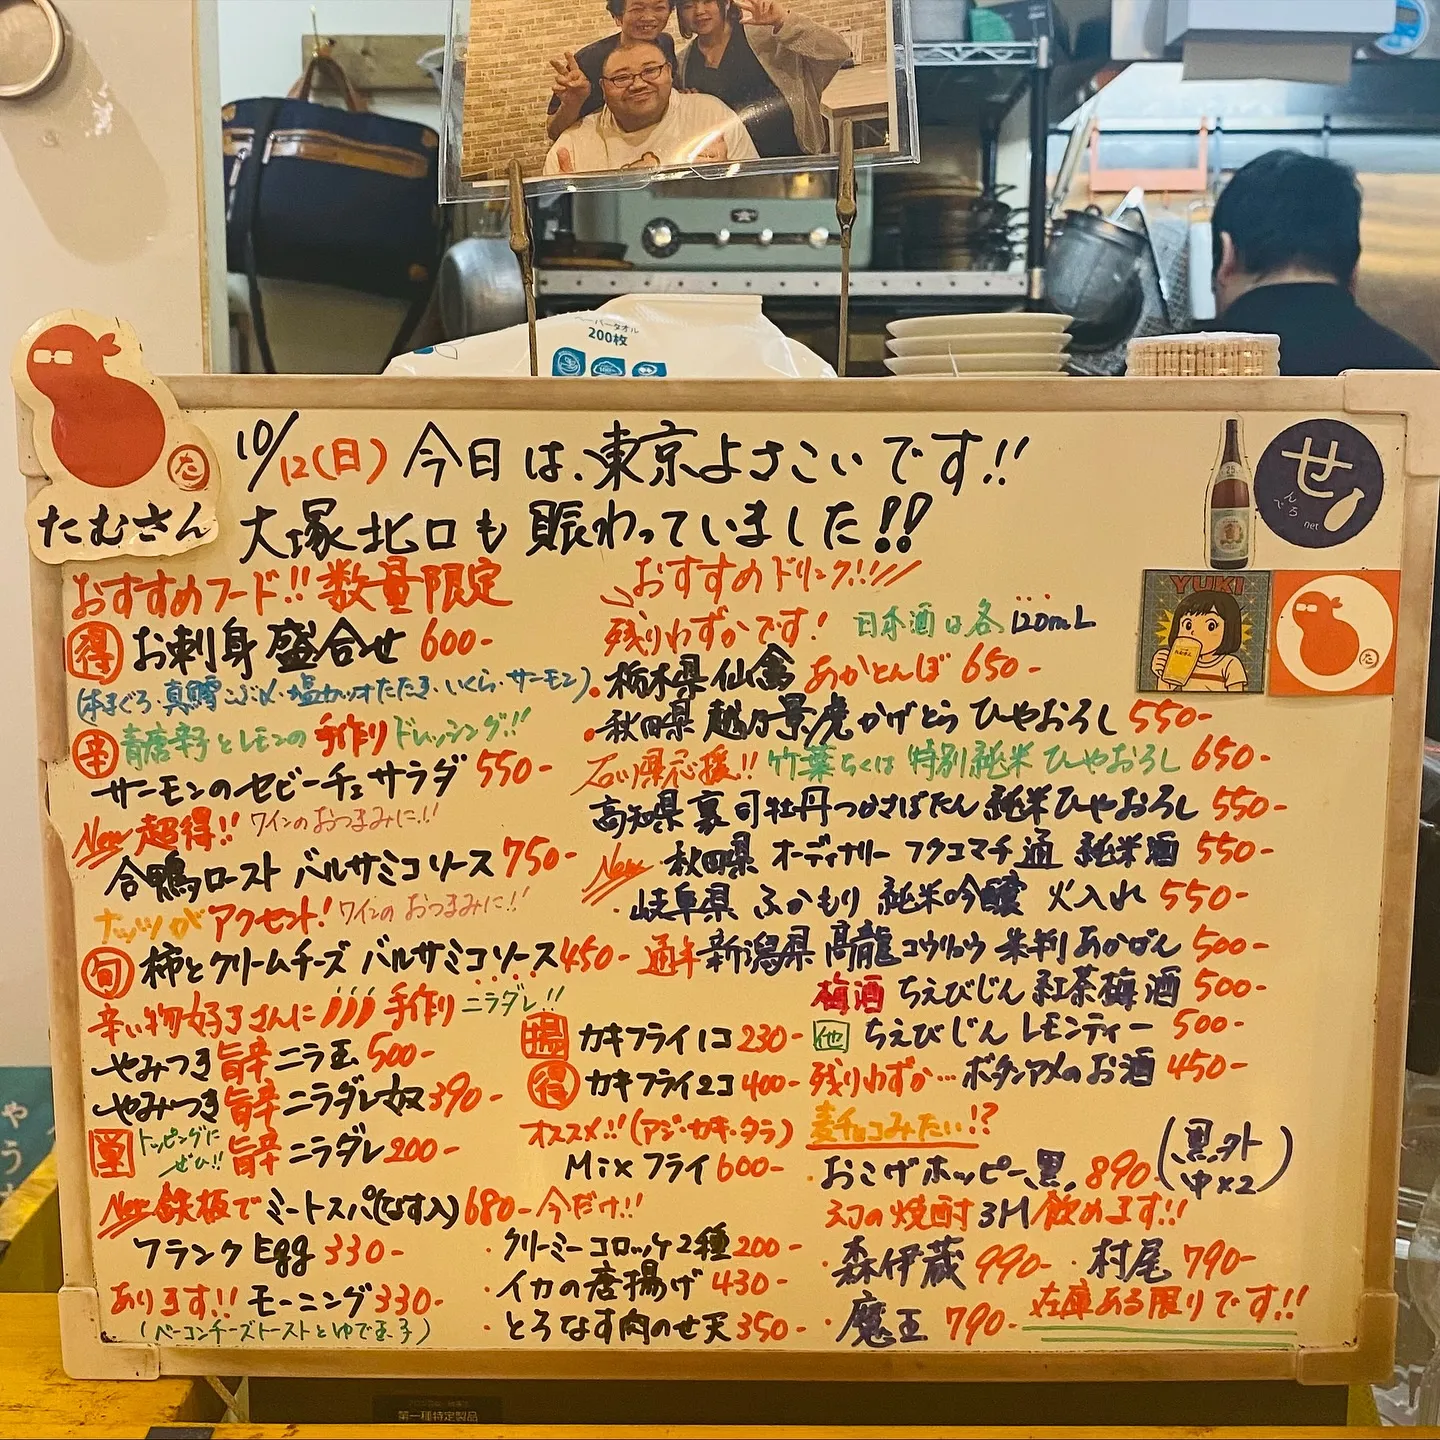 ペーパータオル
200枚
たむさん
た
10/12(日) 今日は、東京よさこいです!!
大塚北口も賑わっていました!!
せ
んでろ
net
YUKI
た
おすすめフード!! 数量限定
得 お刺身盛合せ 600-
(本まぐろ・真鯛こぶ〆・塩カツオたたき・いくら・サーモン)
辛 青唐辛子とレモンの手作りドレッシング!!
サーモンのセビーチェサラダ 550-
New 超得!! ワインのおつまみに!!
合鴨ロースト バルサミコソース 750-
ナッツがアクセント! ワインのおつまみに!!
旬 柿とクリームチーズ バルサミコソース 450-
辛い物好きさんに 手作り ニラダレ!!
やみつき旨辛ニラ玉 500-
やみつき旨辛ニラダレ奴 390-
単 トッピングにぜひ!! 旨辛ニラダレ 200-
New 鉄板でミートスパ(なす入) 680-
フランクEgg 330-
あります!! モーニング 330-
(ベーコンチーズトーストとゆで玉子)
揚 カキフライ1コ 230-
得 カキフライ2コ 400-
オススメ!!(アジ・カキ・タラ)
Mixフライ 600-
今だけ!!
・クリーミーコロッケ2種 200-
・イカの唐揚げ 430-
・とろなす肉のせ天 350-
おすすめドリンク!!
残りわずかです! 日本酒は各120mL
・栃木県 仙禽 あかとんぼ 650-
・秋田県 越乃景虎 かげとら ひやおろし 550-
石川県応援!! 竹葉ちくは 特別純米 ひやおろし 650-
高知県 裏司牡丹つかさぼたん 純米ひやおろし 550-
New・秋田県 オーディナリー フクコマチ 通 純米酒 550-
・岐阜県 ふかもり 純米吟醸 火入れ 550-
通年 新潟県 高龍コウリュウ 朱判あかばん 500-
梅酒 ちえびじん 紅茶梅酒 500-
他 ちえびじん レモンティー 500-
残りわずか… ボタンアメのお酒 450-
麦チョコみたい!?
おこげホッピー黒 890- (黒外 中×2)
幻の焼酎3M飲めます!!
・森伊蔵 990- ・村尾 790-
・魔王 790- 在庫ある限りです!!
第一種特定製品